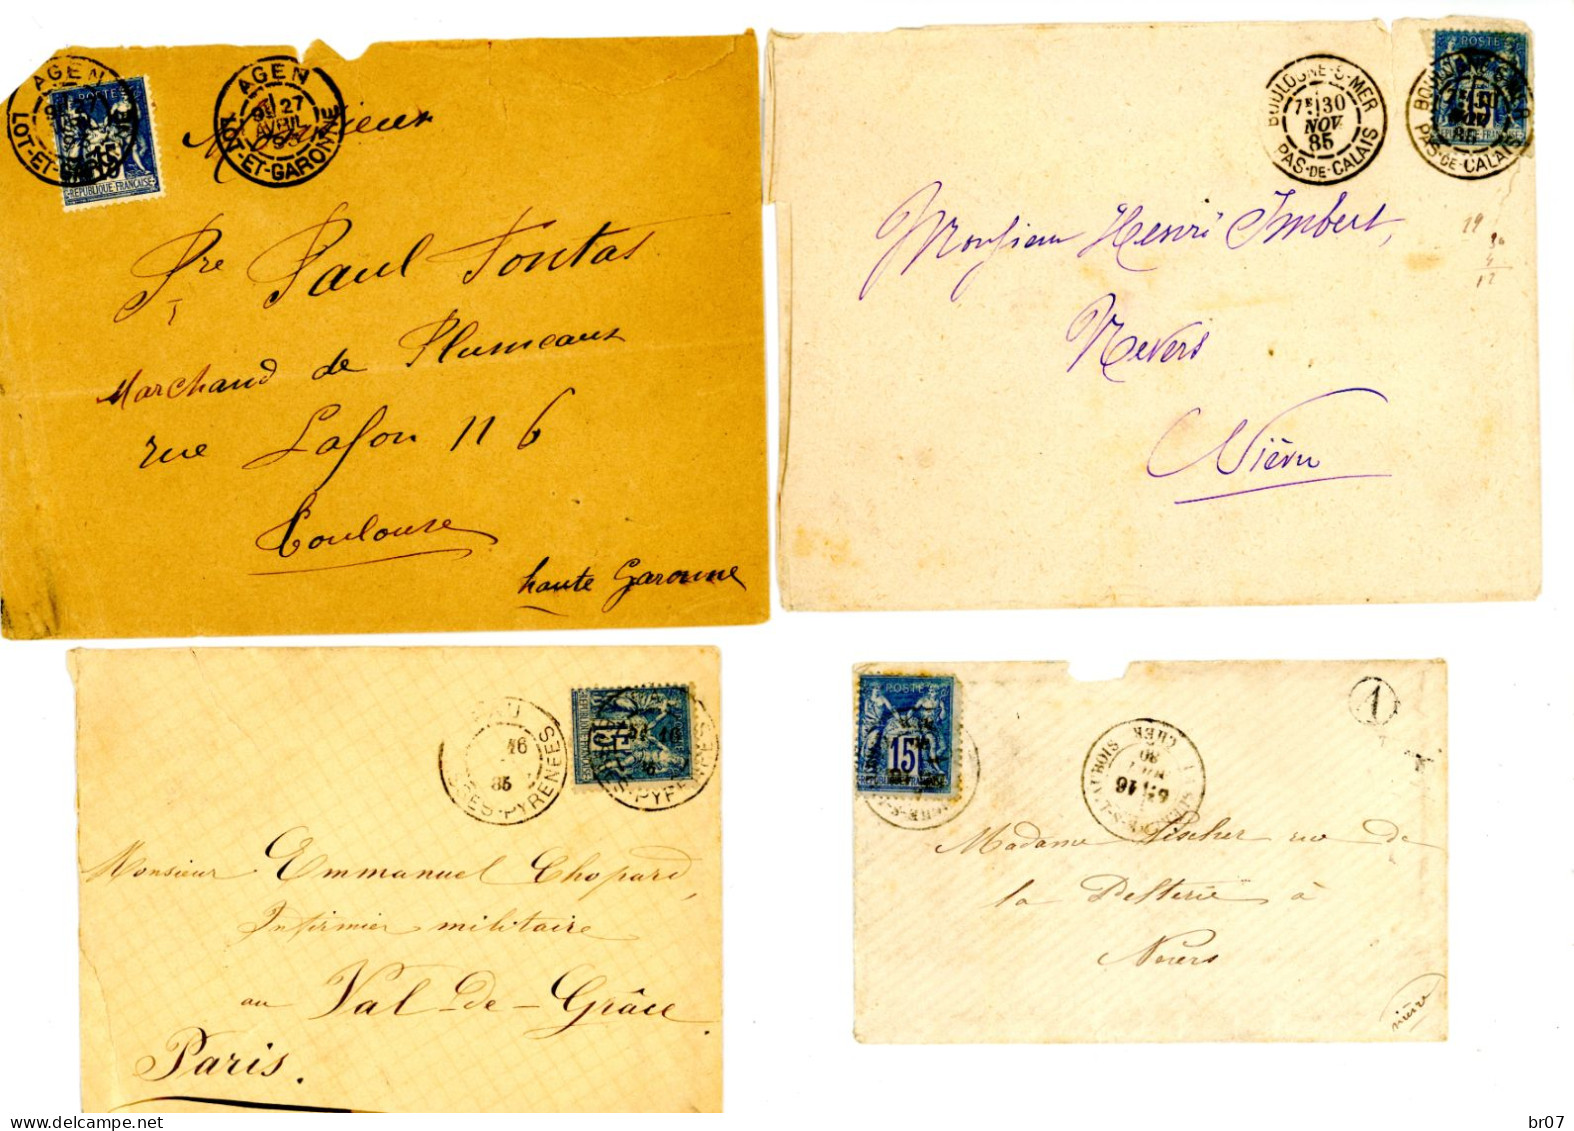 AGEN
LOT-ET-GARONNE
POSTE
15
REPUBLIQUE FRANÇAISE
AGEN
9E 27
AVRIL
LOT-ET-GARONNE
Monsieur
Pre Paul Fontas
Marchand de Plumeaux
rue Lafon 116
Toulouse
haute Garonne
BOULOGNE-S-MER
7E 30
NOV
85
PAS-DE-CALAIS
BOULOGNE-S-MER
NOV
85
PAS-DE-CALAIS
POSTE
15
Monsieur Henri Imbert,
Nevers
Nièvre
19
12
PAU
16
85
SES-PYRENEES
PYRENEES
Monsieur Emmanuel Chopard,
Infirmier militaire
au Val-de-Grâce
Paris.
POSTE
15
REPUBLIQUE FRANÇAISE
1
16
80
S-L'AUBOIS
CHER
Madame Fischer rue de
la Pelterie à
Nevers
nièvre
br07